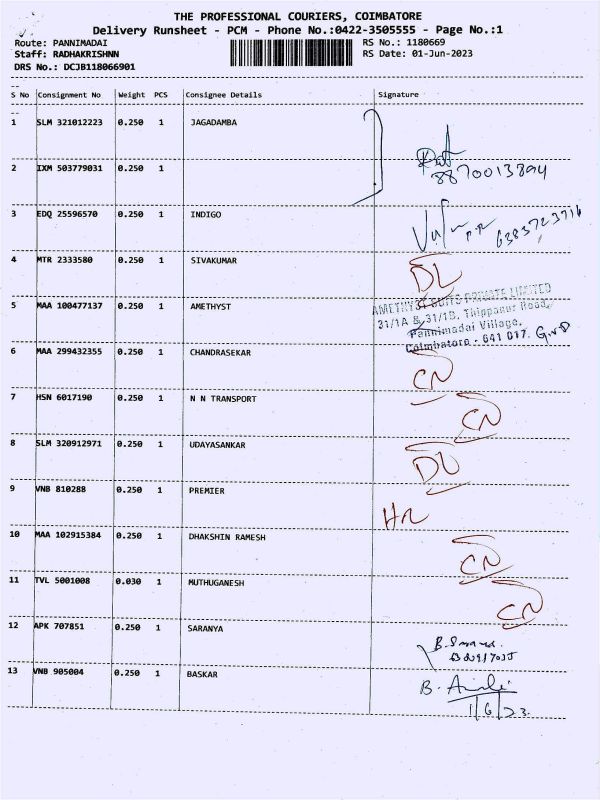 THE PROFESSIONAL COURIERS, COIMBATORE
Delivery Runsheet - PCM - Phone No.:0422-3505555 - Page No.:1
Route: PANNIMADAI RS No.: 1180669
Staff: RADHAKRISHNN RS Date: 01-Jun-2023
DRS No.: DCJB118066901
--
S No Consignment No Weight PCS Consignee Details Signature
--
1 SLM 321012223 0.250 1 JAGADAMBA
8870013894
2 IXM 503779031 0.250 1
3 EDQ 25596570 0.250 1 INDIGO
6383723716
4 MTR 2333580 0.250 1 SIVAKUMAR DL
5 MAA 100477137 0.250 1 AMETHYST
AMETHYST SUITS PRIVATE LIMITED
31/1A & 31/1B, Thippanur Road,
Pannimadai Village,
Coimbatore - 641 017.
6 MAA 299432355 0.250 1 CHANDRASEKAR CN
7 HSN 6017190 0.250 1 N N TRANSPORT CN
8 SLM 320912971 0.250 1 UDAYASANKAR DL
9 VNB 810288 0.250 1 PREMIER
10 MAA 102915384 0.250 1 DHAKSHIN RAMESH CN
11 TVL 5001008 0.030 1 MUTHUGANESH CN
12 APK 707851 0.250 1 SARANYA
13 VNB 905004 0.250 1 BASKAR
1/6/23